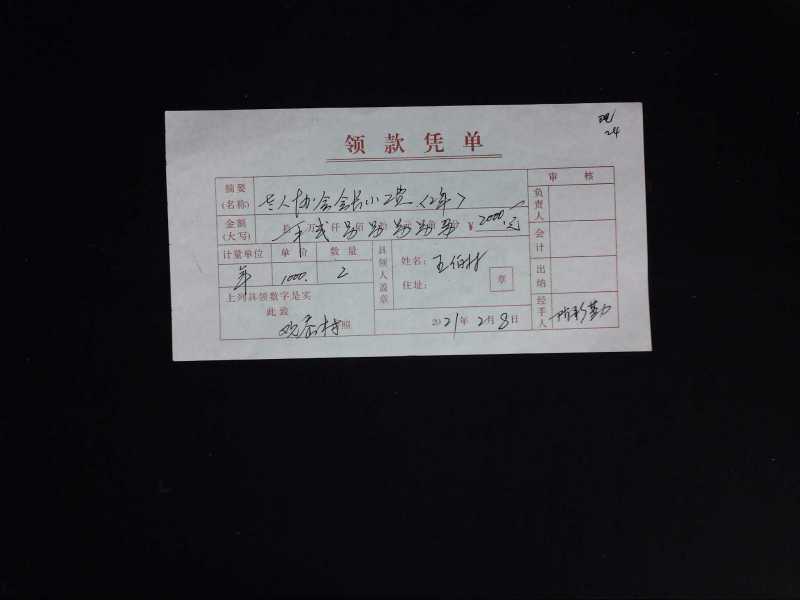 现
24
领款凭单
摘要
(名称) 老人协会会长小工资(2年)
金额
(大写) 拾 万 仟 佰 ¥ 2000.元
计量单位 单价 数量
年 1000. 2
上列具领数字是实
此致
村 照
具领人盖章
姓名: 王伯村
住址:
章
2021年2月8日
审核
负责人
会计
出纳
经手人